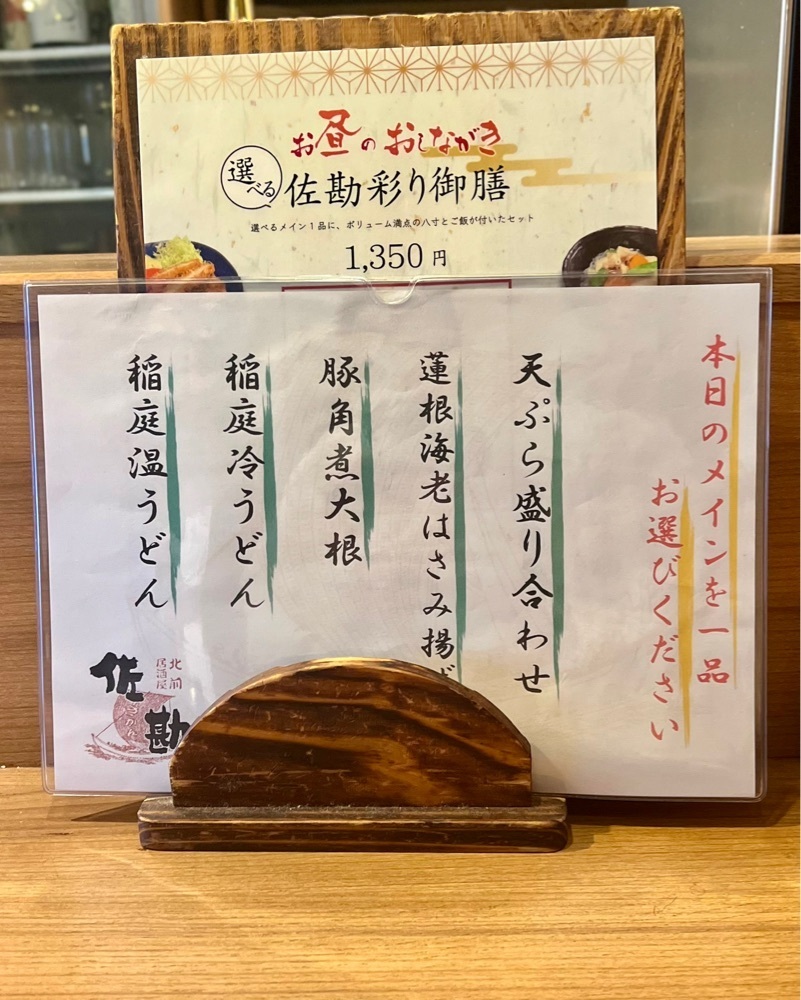 お昼のおしながき
選べる
佐勘彩り御膳
選べるメイン1品に、ボリューム満点の八寸とご飯が付いたセット
1,350円
本日のメインを一品
お選びください
天ぷら盛り合わせ
蓮根海老はさみ揚げ
豚角煮大根
稲庭冷うどん
稲庭温うどん
北前
居酒屋
佐勘
さかん